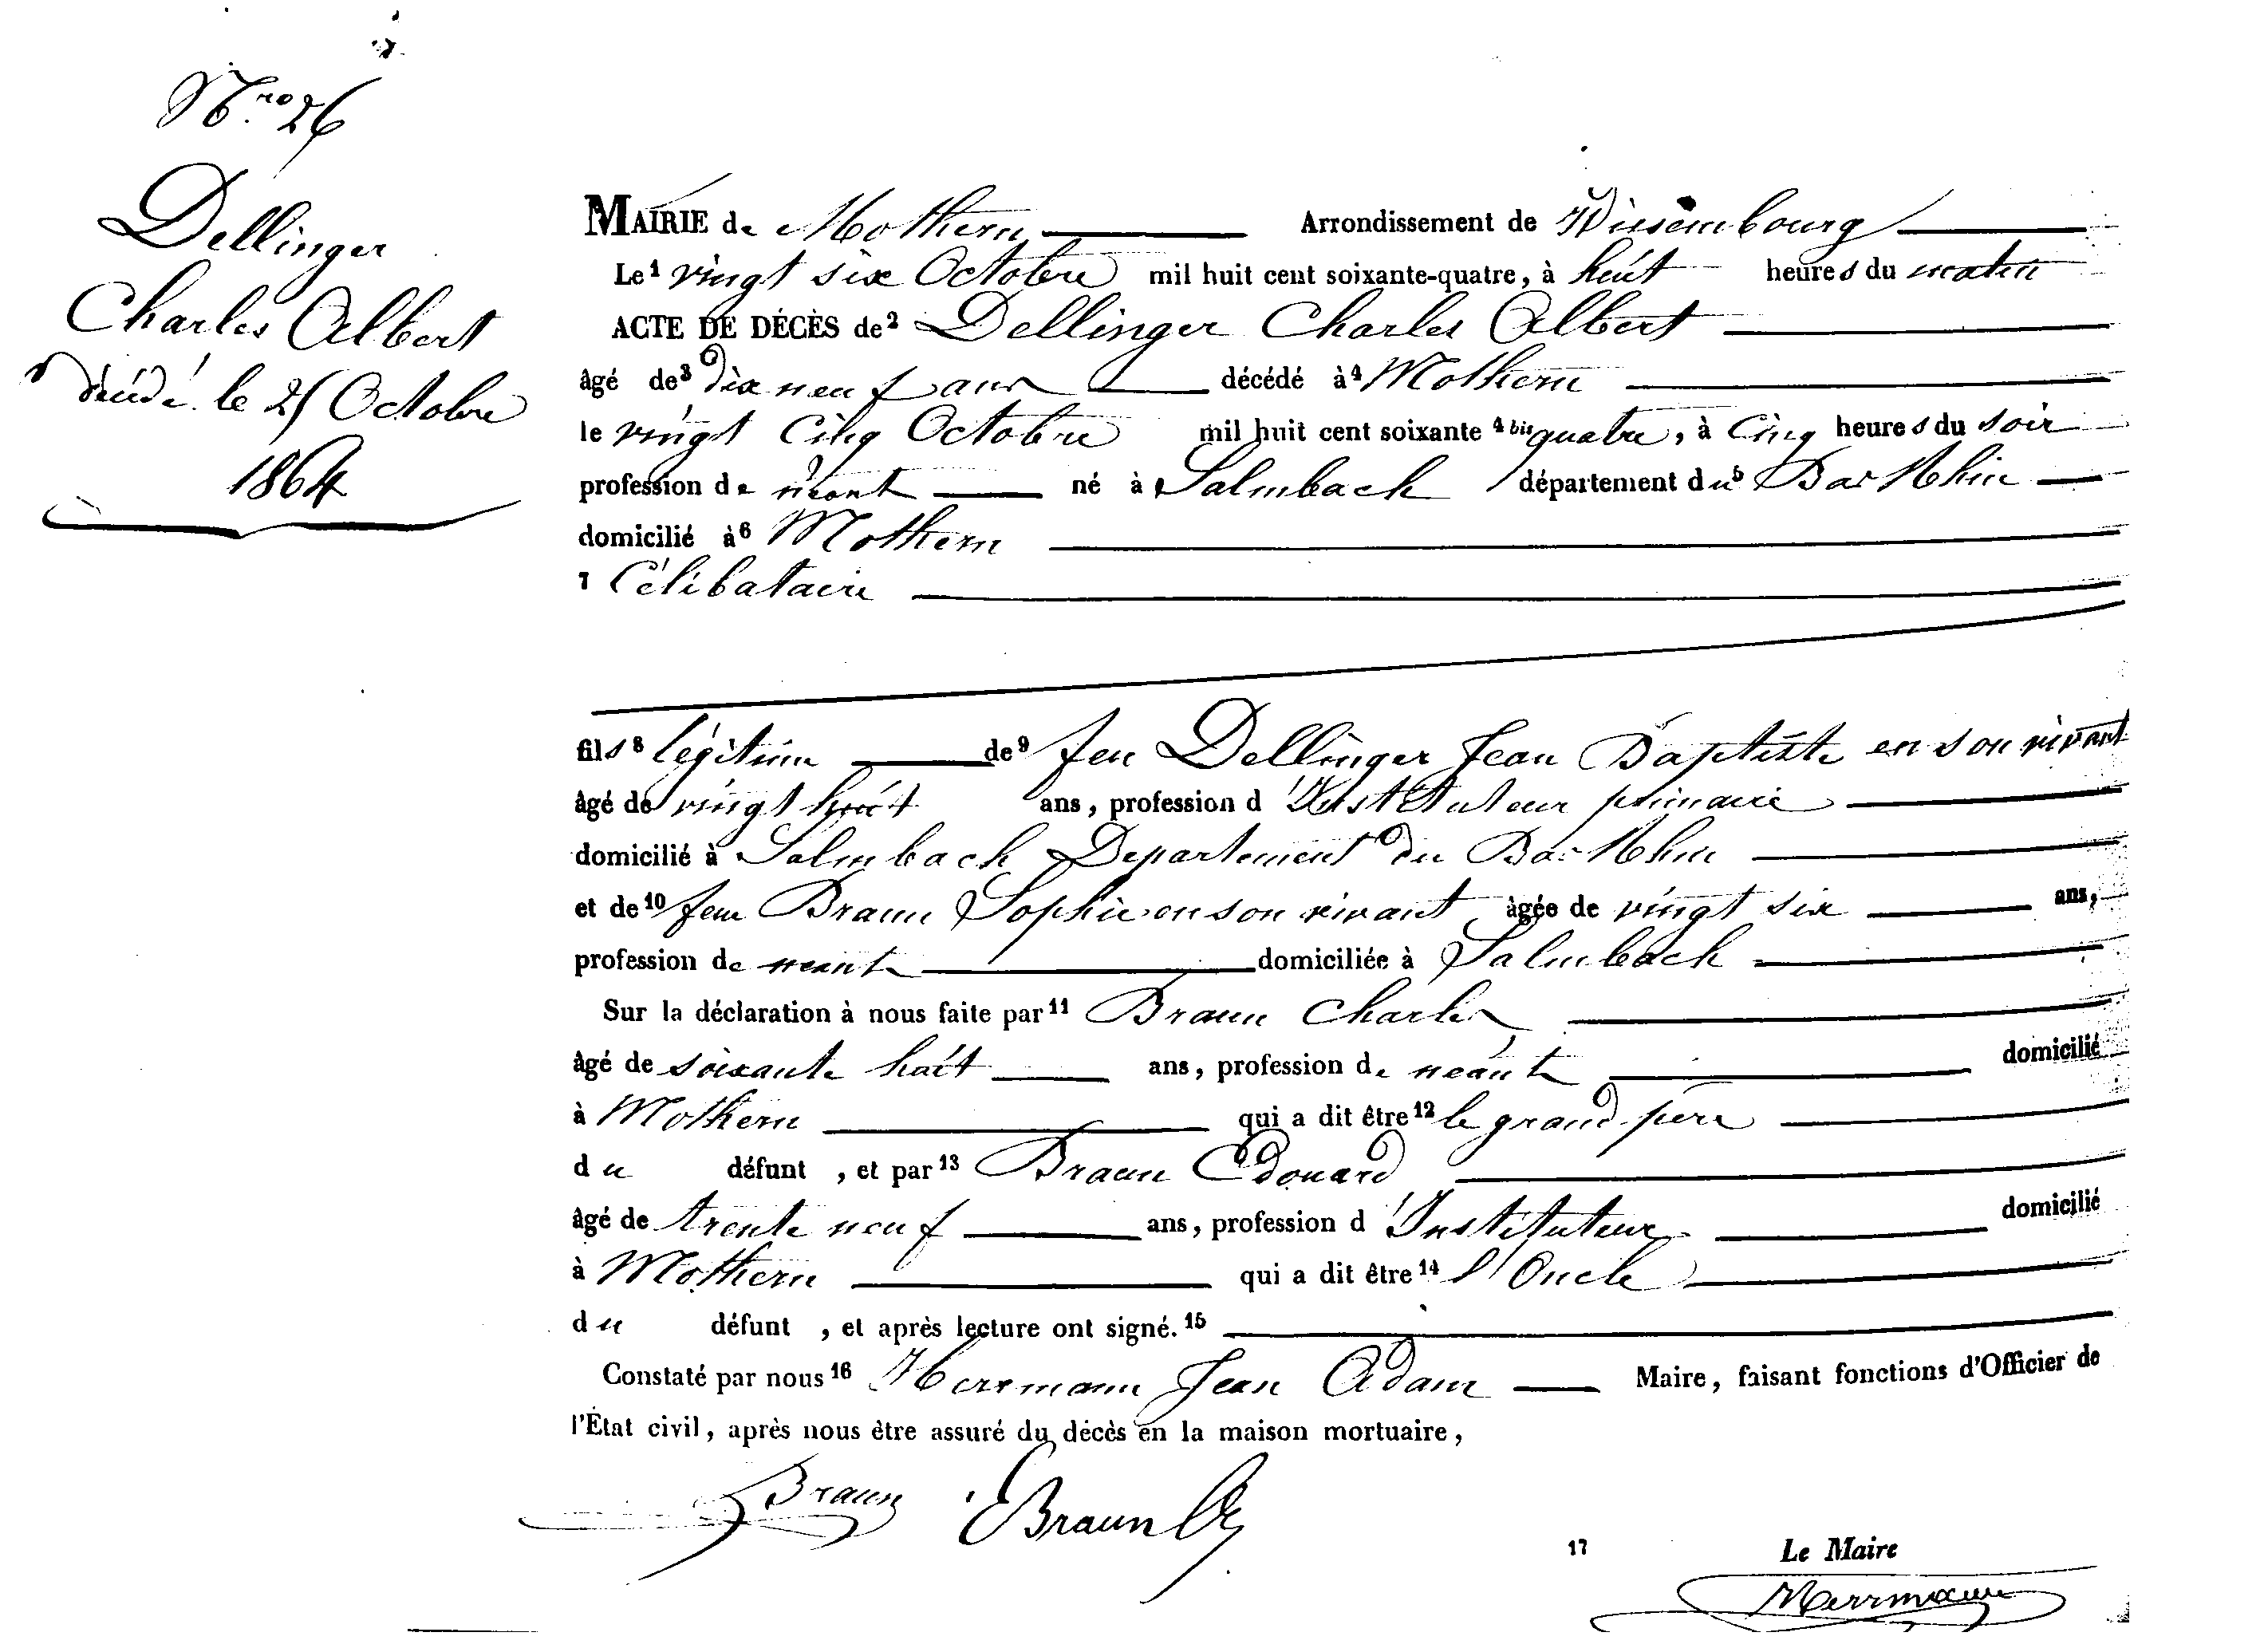 Nro 26
Dellinger
Charles Albert
décédé le 25 Octobre
1864
MAIRIE de Mothern Arrondissement de Wissembourg
Le 1 vingt six Octobre mil huit cent soixante-quatre, à huit heures du matin
ACTE DE DÉCÈS de 2 Dellinger Charles Albert
âgé de 3 dix neuf ans décédé à 4 Mothern
le vingt cinq Octobre mil huit cent soixante 4 bis quatre, à cinq heures du soir
profession de néant né à Salmbach département du 5 Bas Rhin
domicilié à 6 Mothern
7 Célibataire
fils 8 légitime de 9 feu Dellinger Jean Baptiste en son vivant
âgé de vingt huit ans, profession d'Instituteur primaire
domicilié à Salmbach Departement du Bas Rhin
et de 10 feue Braun Sophie en son vivant âgée de vingt six ans,
profession de néant domiciliée à Salmbach
Sur la déclaration à nous faite par 11 Braun Charles
âgé de soixante huit ans, profession de néant domicilié
à Mothern qui a dit être 12 le grand-père
du défunt, et par 13 Braun Edouard
âgé de trente neuf ans, profession d'Instituteur domicilié
à Mothern qui a dit être 14 l'Oncle
du défunt, et après lecture ont signé. 15
Constaté par nous 16 Herrmann Jean Adam Maire, faisant fonctions d'Officier de
l'État civil, après nous être assuré du décès en la maison mortuaire,
Braun EBraun
17 Le Maire
Herrmann